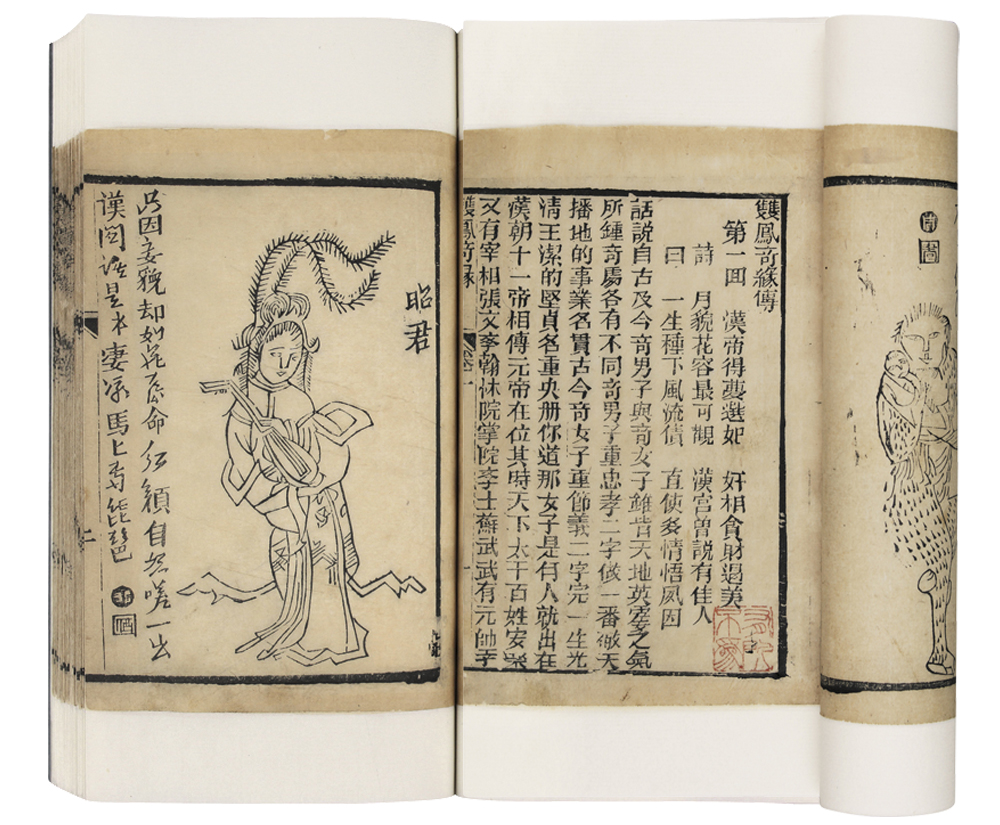 雙鳳奇緣傳
第一囬 漢帝得夢選妃 奸相貪財遏美
詩 月貌花容最可觀 漢宮曾說有佳人
曰 一生種下風流債 直使多情悟夙因
話說自古及今奇男子與奇女子雖皆天地英靈之氣
所鍾奇處各有不同奇男子重忠孝二字做一番徹天
播地的事業名貫古今奇女子重節義二字完一生光
清王潔的堅貞名重央册你道那女子是何人就出在
漢朝十一帝相傳元帝在位其時天下太干百姓安樂
又有宰相張文李翰林院掌院李士蘇武武有元帥李
雙鳳奇緣
卷一
一
昭君
只因妾貌却如花 命紅顏自怨嗟一出
漢 誰是 凄凉馬上 琵琶
二